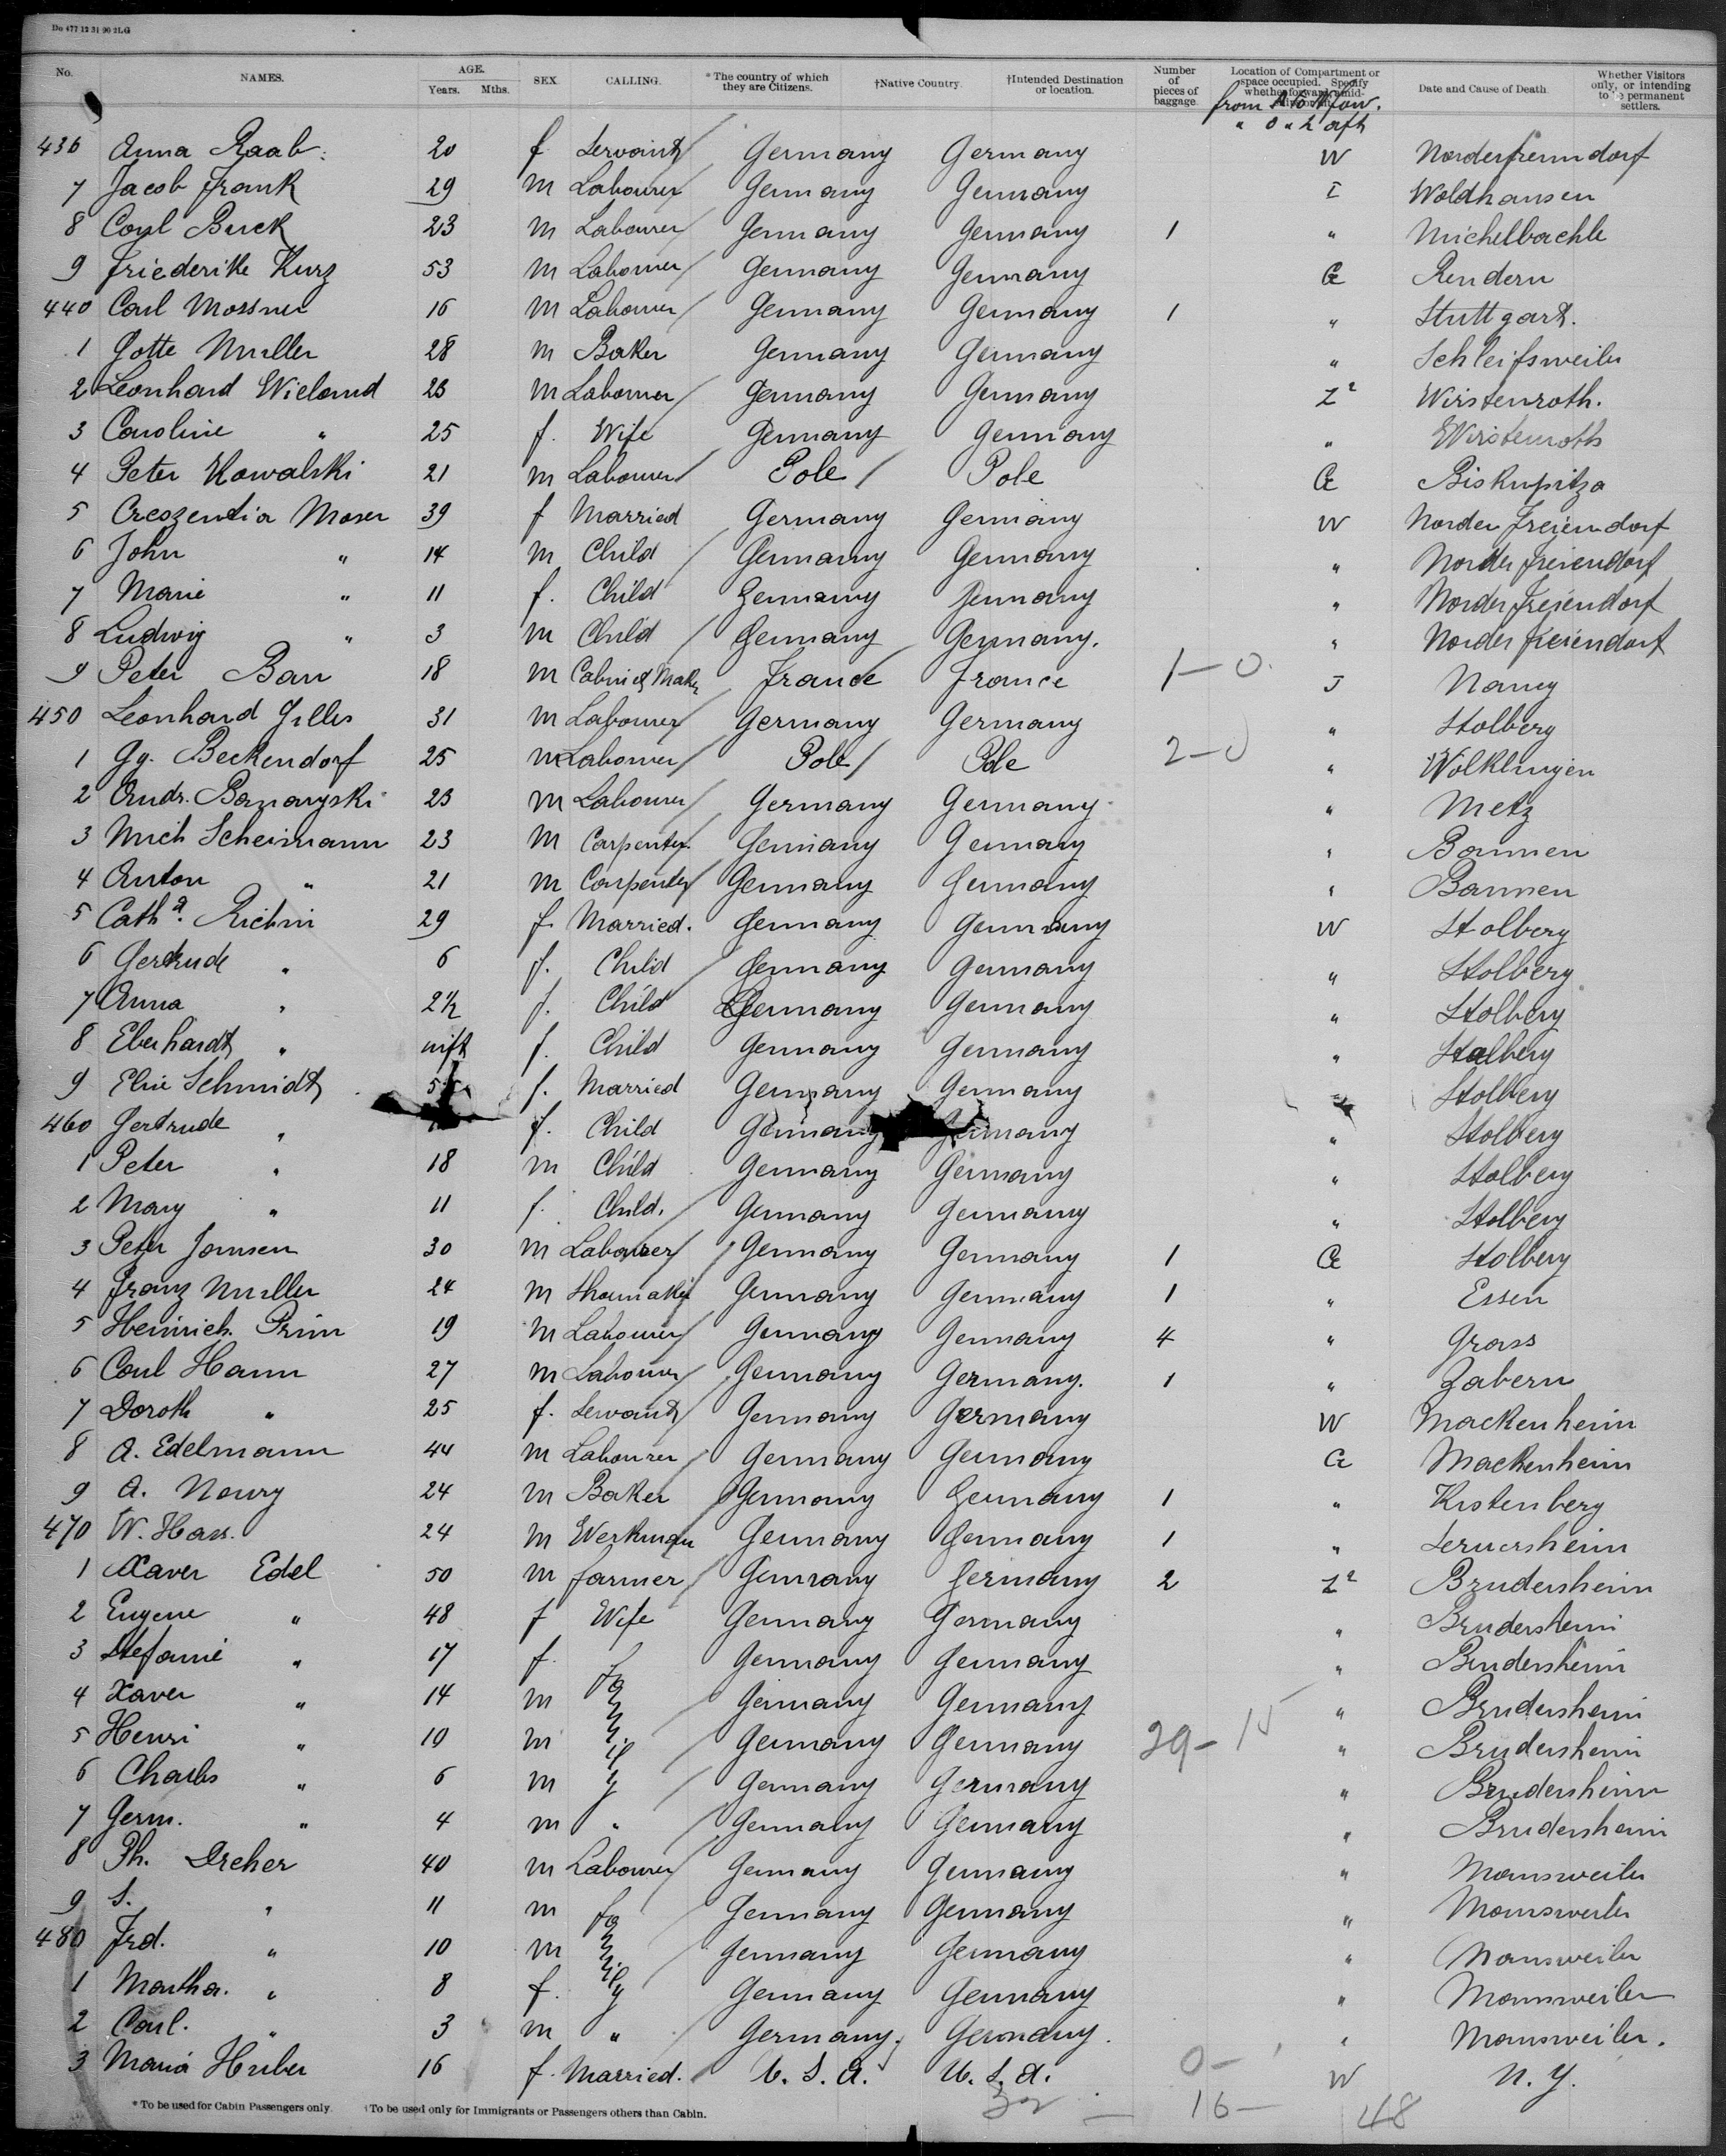 Do 477 12 31 90 2LG
No. NAMES. AGE. Years. Mths. SEX. CALLING. *The country of which they are Citizens. †Native Country. †Intended Destination or location. Number of pieces of baggage. Location of Compartment or space occupied. Specify whether forward, amid- Date and Cause of Death. Whether Visitors only, or intending to be permanent settlers.
" 0 " 2 aft
436 Anna Raab. 20 f Servant Germany Germany W
7 Jacob Frank 29 M Labourer Germany Germany Waldhausen
8 Carl Buck 23 M Labourer Germany Germany 1 " Michelbachle
9 Friederike Kurz 53 M Labourer Germany Germany Rendern
440 Carl Mossner 16 M Labourer Germany Germany 1 " Stuttgart.
1 Gotte Muller 28 M Baker Germany Germany " Schleifsweiler
2 Leonhard Wieland 23 M Labourer Germany Germany Z² Wirstenroth.
3 Caroline " 25 f. Wife Germany Germany " Wirstenroth
4 Peter Kowalski 21 M Labourer Pole Pole Biskupitza
5 Creszentia Moser 39 f Married Germany Germany W Norder freiendorf
6 John " 14 M Child Germany Germany " Norder freiendorf
7 Marie " 11 f. Child Germany Germany " Norder freiendorf
8 Ludwig " 3 M Child Germany Germany. " Norder freiendorf
9 Peter Barr 18 M Cabinet Maker France France 1-0 Nancy
450 Leonhard Gilles 31 M Labourer Germany Germany " Stolberg
1 Gg. Beckendorf 25 M Labourer Pole Pole 2-0 " Wolklingen
2 Andr. 23 M Labourer Germany Germany " Metz
3 Mich Scheimann 23 M Carpenter Germany Germany " Barmen
4 Anton " 21 M Carpenter Germany Germany " Barmen
5 Cath a. 29 f. Married. Germany Germany W Stolberg
6 Gertrude " 6 f. Child Germany Germany " Stolberg
7 Anna " 2½ f. Child Germany Germany " Stolberg
8 Eberhardt " inft f. Child Germany Germany " Stolberg
9 Elise Schmidt f. Married Germany Germany Stolberg
460 Gertrude " f. Child Germany Germany " Stolberg
1 Peter " 18 M Child Germany Germany " Stolberg
2 Mary " 11 f. Child. Germany Germany " Stolberg
3 Peter Jansen 30 M Labourer Germany Germany 1 Stolberg
4 Franz Muller 24 M Shoemaker Germany Germany 1 " Essen
5 Heinrich. Prim 19 M Labourer Germany Germany 4 " Grass
6 Carl Hann 27 M Labourer Germany Germany. 1 " Zabern
7 Doroth " 25 f. Servant Germany Germany W Mackenheim
8 A. Edelmann 44 M Labourer Germany Germany Mackenheim
9 A. Noury 24 M Baker Germany Germany 1 " Kistenberg
470 W. Hass. 24 M Workman Germany Germany 1 "
1 Xaver Edel 50 M farmer Germany Germany 2 Z² Brudersheim
2 Eugene " 48 f Wife Germany Germany " Brudersheim
3 Stefanie " 17 f. Germany Germany " Brudersheim
4 Xaver " 14 M Germany Germany " Brudersheim
5 Henri " 10 M Germany Germany 29-15 " Brudersheim
6 Charles " 6 M Germany Germany " Brudersheim
7 Germ. " 4 M " Germany Germany " Brudersheim
8 Ph. Dreher 40 M Labourer Germany Germany " Mansweiler
9 S. " 11 M Germany Germany " Mansweiler
480 Frd. " 10 M Germany Germany " Mansweiler
1 Martha. " 8 f. Germany Germany " Mansweiler
2 Carl. " 3 M " Germany. Germany. " Mansweiler.
3 Maria Huber 16 f. Married. U.S.A. U.S.A. 0- W N.Y.
16- 48
*To be used for Cabin Passengers only. †To be used only for Immigrants or Passengers others than Cabin.